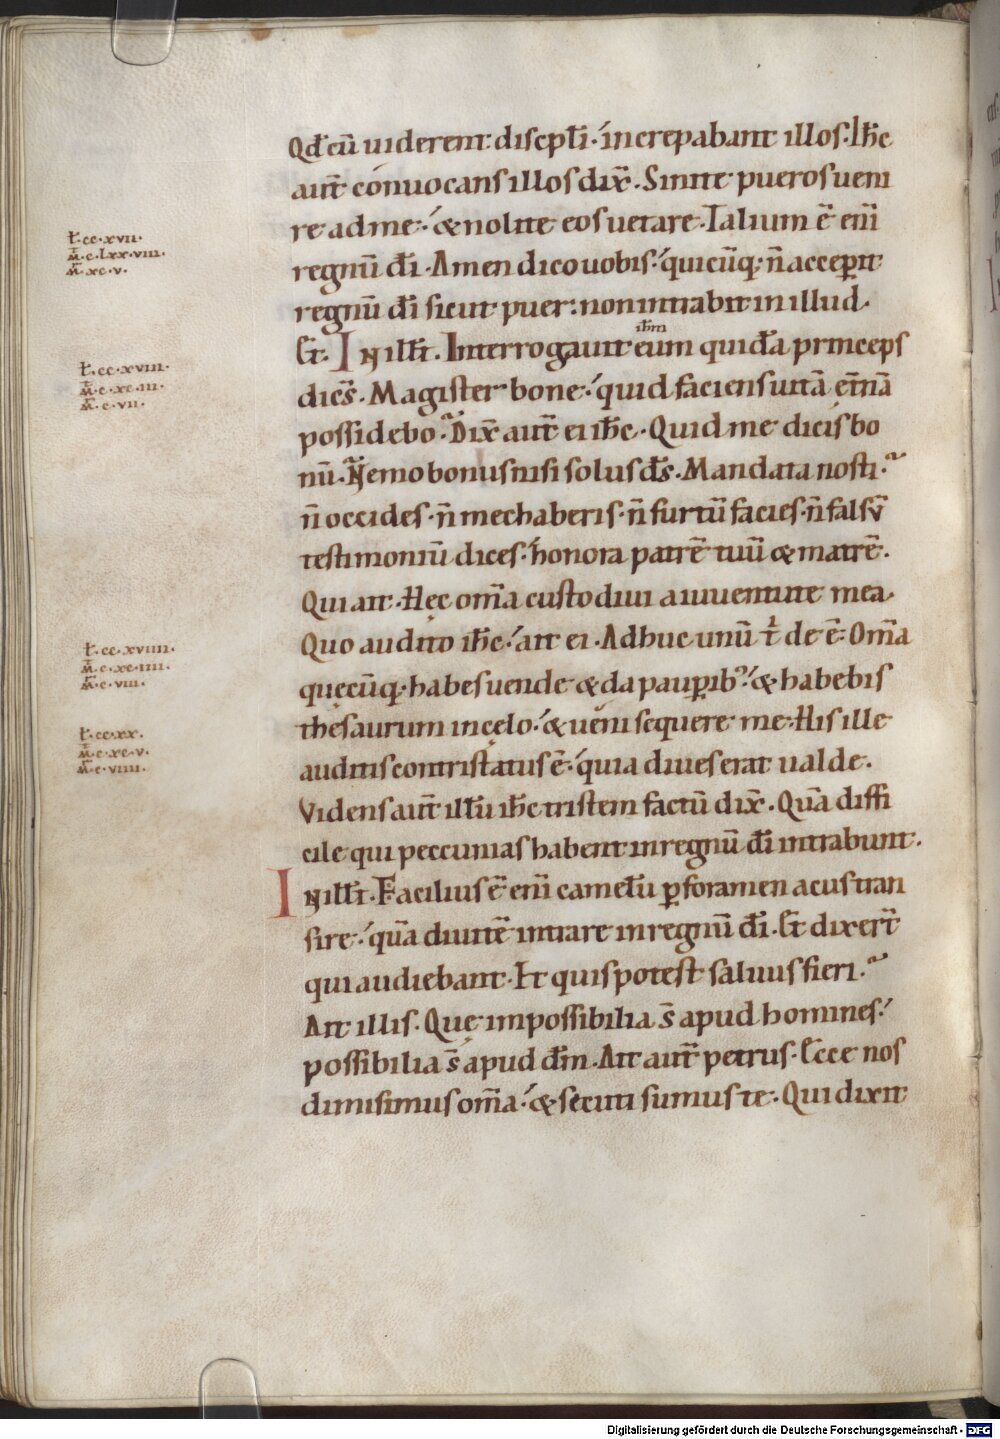 Qđ cū uiderent: discpłi· increpabant illos· Ihc̄
aut̄ conuocans illos dix̄· Sinite pueros ueni
re ad me·́ & nolite eos uetare· Talium ē eni̅
regnū dī· Amen dico uobis·́ quicūq; n̄ acceꝑit
regnū dī sicut puer: non intrabit in illud·
Et· IN illł̄i· Interrogauit eum quidā princeps
ihm̄
dicēs· Magister bone·́ quid faciens uitā et̄nā
possidebo· Dix̄ aut̄ ei ihc̄· Quid me dicis bo
nū· Nemo bonus nisi solus ds̄· Mandata nosti·
n̄ occides· n̄ mechaberis· n̄ furtū facies· n̄ falsv̄
testimoniū dices· honora patrē tuū & matrē·
Qui ait· Hęc om̄a custodiui a iuuentute mea·
Quo audito ihc̄·́ ait ei· Adhuc unū t̄ de ē· Om̄a
quęcūq; habes uende & da pauꝑib᾽·́ & habebis
thesaurum in cęlo·́ & ueni sequere me· His ille
auditis contristatus ē·́ quia diues erat ualde·
Videns aut̄ illū ihc̄ tristem factū dix̄· Quā diffi
cile qui peccunias habent in regnū dī intrabunt·
IN illł̄i· Facilius ē eni̅ camelū ꝑ foramen acus tran
sire·́ quā diuitē intrare in regnū dī· Et dixer̄t
qui audiebant· Et quis potest saluus fieri·
Ait illis· Quę impossibilia s̄ apud homines·́
possibilia s̄ apud dm̄· Ait aut̄ petrus· Ecce nos
dimisimus om̄a·́ & secuti sumus te· Qui dixit
ł·cc·xvii·
M̄·c·lxx·viii·
M̄·xc·v·
ł·cc·xviii·
M̄·c·xc·iii·
M̄·c·vii·
ł·cc·xviiii·
M̄·c·xc·iiii·
M̄·c·viii·
ł·cc·xx·
M̄·c·xc·v·
M̄·c·viiii·
Digitalisierung gefördert durch die Deutsche Forschungsgemeinschaft - DFG